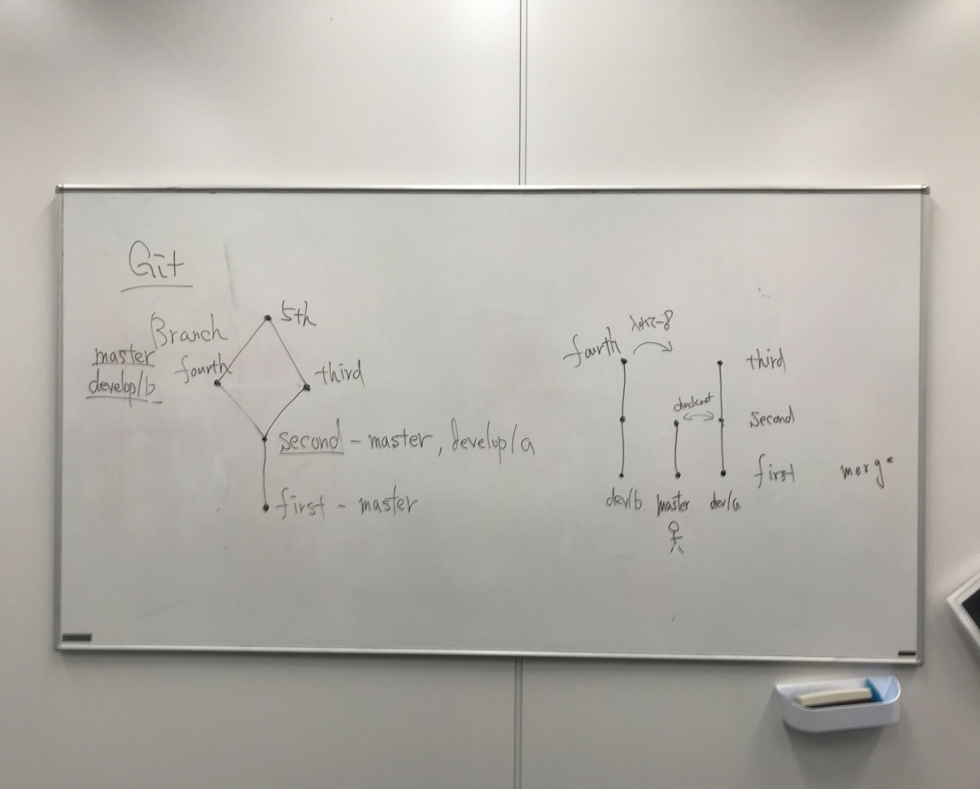 Git
Branch
5th
master
develop/b
fourth
third
second - master, develop/a
first - master
fourth
third
checkout
second
first
merge
dev/b
master
dev/a